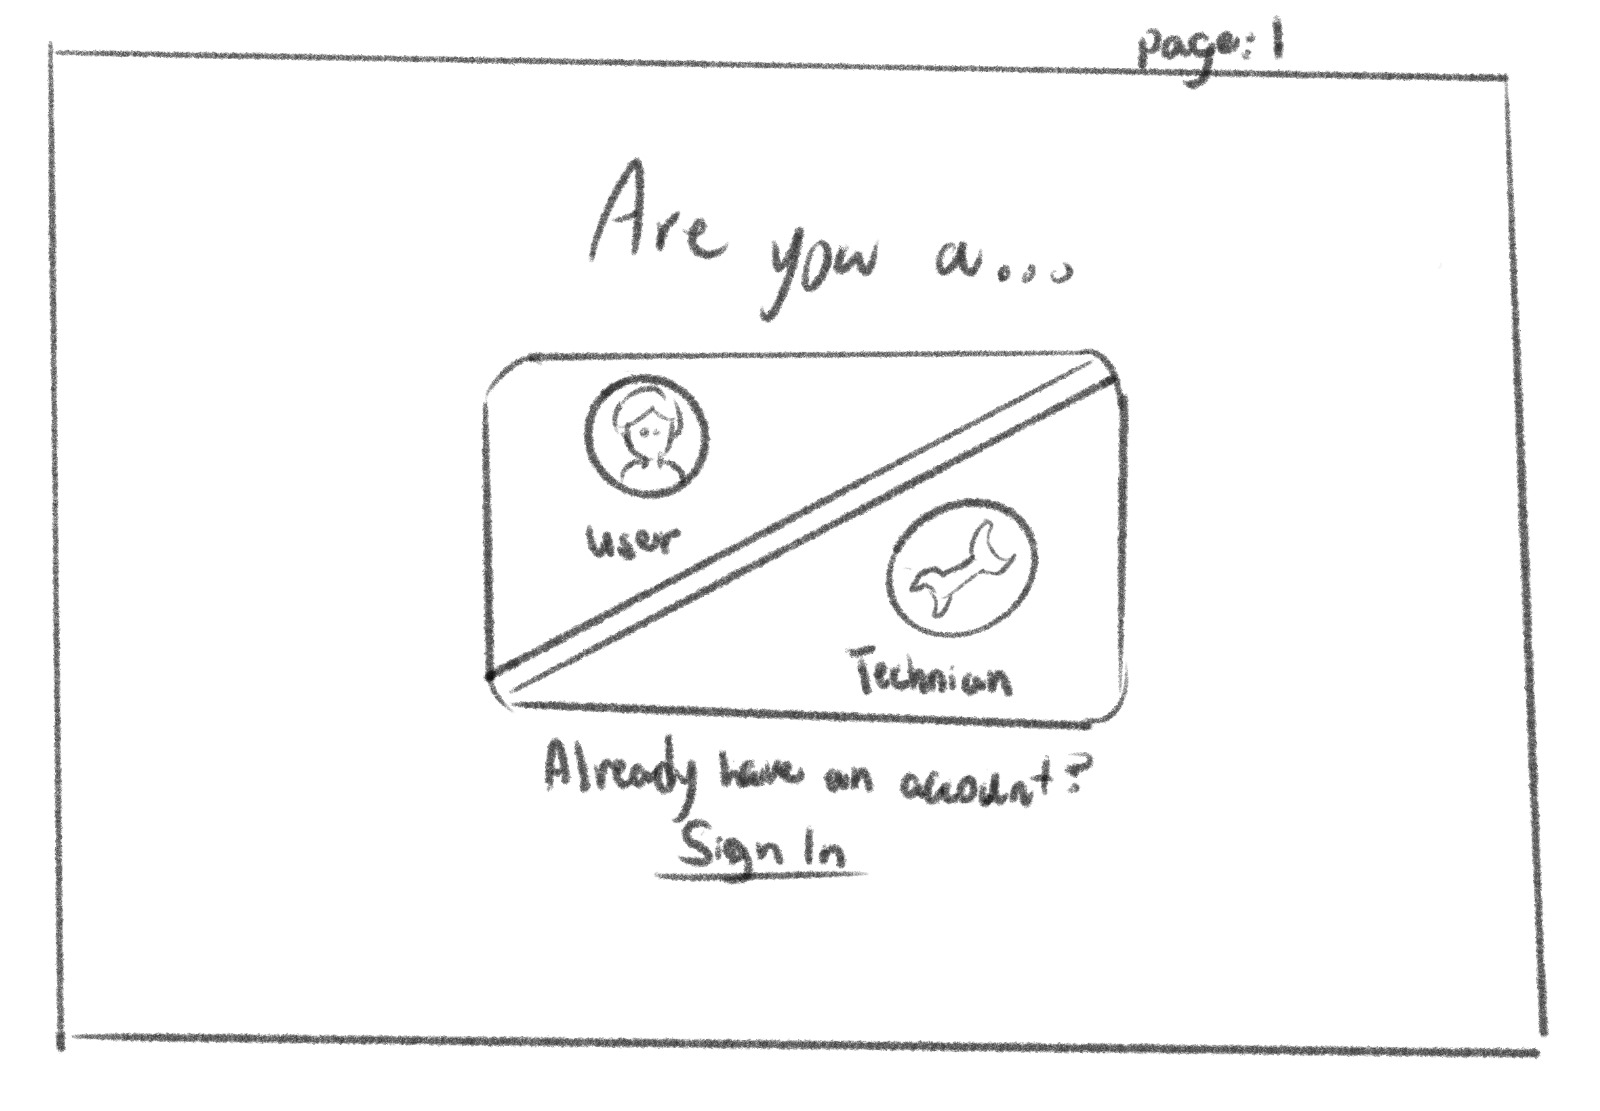 page: 1
Are you a...
user
Technician
Already have an account?
Sign In